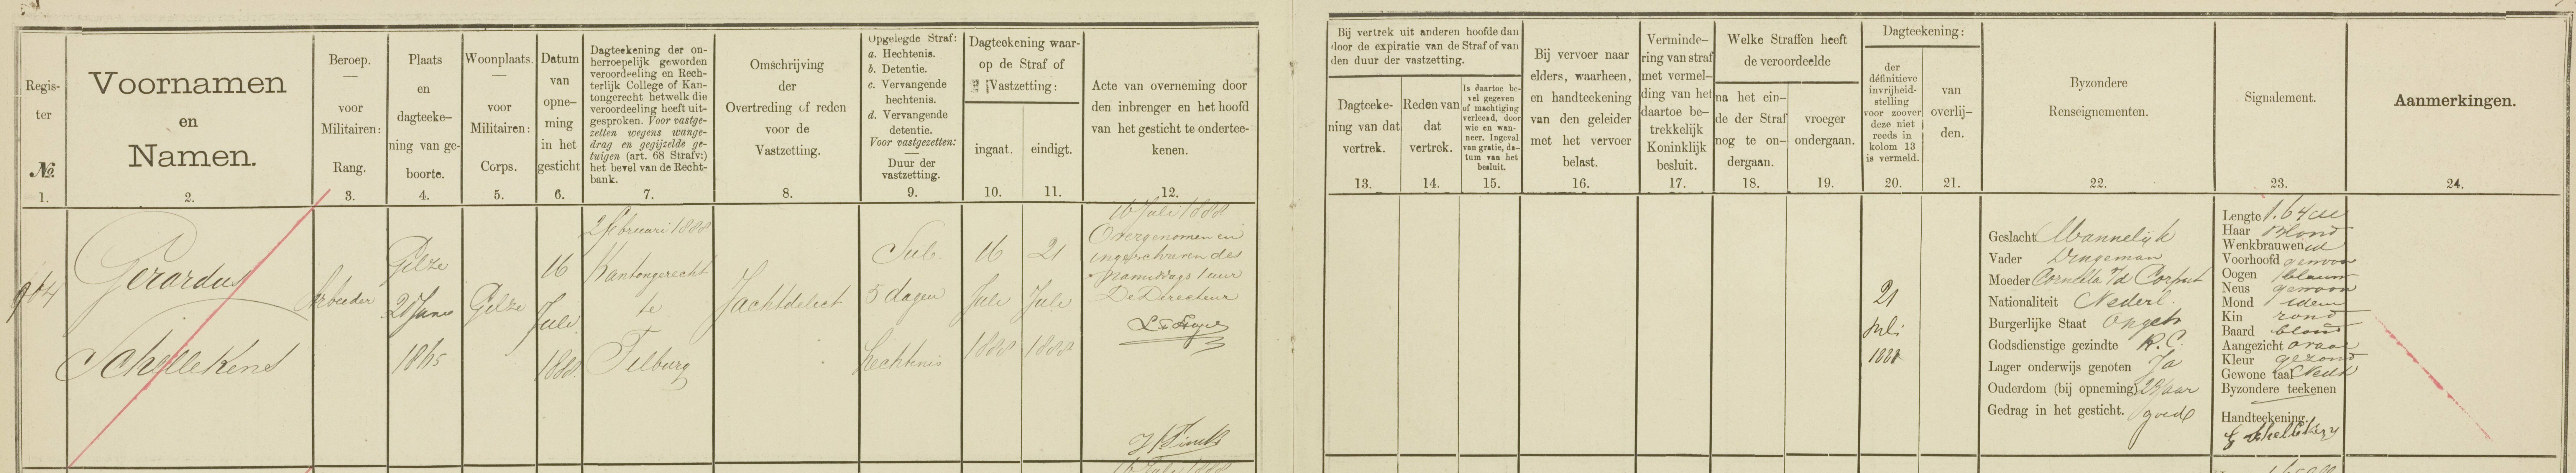 Regis-
ter
No.
1.
Voornamen
en
Namen.
2.
Beroep.
voor
Militairen:
Rang.
3.
Plaats
en
dagteeke-
ning van ge-
boorte.
4.
Woonplaats.
voor
Militairen:
Corps.
5.
Datum
van
opne-
ming
in het
gesticht
6.
Dagteekening der on-
herroepelijk geworden
veroordeeling en Rech-
terlijk College of Kan-
tongerecht hetwelk die
veroordeeling heeft uit-
gesproken. Voor vastge-
zetten wegens wange-
drag en gegijzelde ge-
tuigen (art. 68 Strafv:)
het bevel van de Recht-
bank.
7.
Omschrijving
der
Overtreding of reden
voor de
Vastzetting.
8.
Opgelegde Straf:
a. Hechtenis.
b. Detentie.
c. Vervangende
hechtenis.
d. Vervangende
detentie.
Voor vastgezetten:
Duur der
vastzetting.
9.
Dagteekening waar-
op de Straf of
Vastzetting:
ingaat.
10.
eindigt.
11.
Acte van overneming door
den inbrenger en het hoofd
van het gesticht te ondertee-
kenen.
12.
Bij vertrek uit anderen hoofde dan
door de expiratie van de Straf of van
den duur der vastzetting.
Dagteeke-
ning van dat
vertrek.
13.
Reden van
dat
vertrek.
14.
Is daartoe be-
vel gegeven
of machtiging
verleend, door
wie en wan-
neer. Ingeval
van gratie, da-
tum van het
besluit.
15.
Bij vervoer naar
elders, waarheen,
en handteekening
van den geleider
met het vervoer
belast.
16.
Verminde-
ring van straf
met vermel-
ding van het
daartoe be-
trekkelijk
Koninklijk
besluit.
17.
Welke Straffen heeft
de veroordeelde
na het ein-
de der Straf
nog te on-
dergaan.
18.
vroeger
ondergaan.
19.
Dagteekening:
der
définitieve
invrijheid-
stelling
voor zoover
deze niet
reeds in
kolom 13
is vermeld.
20.
van
overlij-
den.
21.
Byzondere
Renseignementen.
22.
Signalement.
23.
Aanmerkingen.
24.
904
Gerardus
Schellekens
Arbeider
Gilze
20 Juni
1865
Gilze
16
Juli
1888
2 februari 1888
Kantongerecht
te
Tilburg
Jachtdelict
Sub.
5 dagen
hechtenis
16
Juli
1888
21
Juli
1888
16 Juli 1888
Overgenomen en
ingeschreven des
namiddags 1 uur
De Directeur
21
Juli
1888
Geslacht Mannelijk
Vader Dingeman
Moeder Cornelia v/d
Nationaliteit Nederl.
Burgerlijke Staat Ongeh
Godsdienstige gezindte R.C.
Lager onderwijs genoten Ja
Ouderdom (bij opneming) 23 jaar
Gedrag in het gesticht. goed
Lengte 1.64
Haar Blond
Wenkbrauwen id
Voorhoofd gewoon
Oogen blauw
Neus gewoon
Mond idem
Kin rond
Baard blond
Aangezicht ovaal
Kleur gezond
Gewone taal Nedl
Byzondere teekenen
Handteekening.
G Schellekens
16 Juli 1888